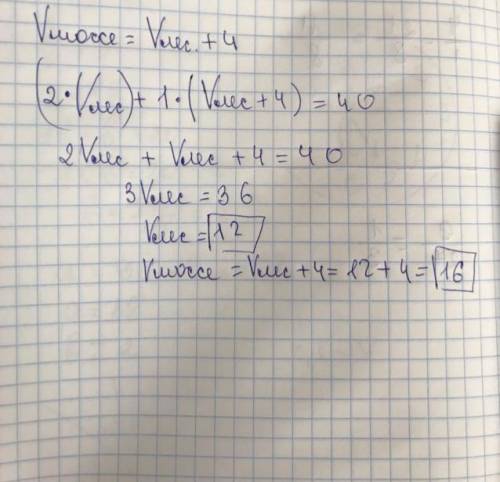 Vшоссе = Vлес. + 4
(2·Vлес) + 1·(Vлес + 4) = 40
2Vлес + Vлес + 4 = 40
3Vлес = 36
Vлес = 12
Vшоссе = Vлес + 4 = 12 + 4 = 16